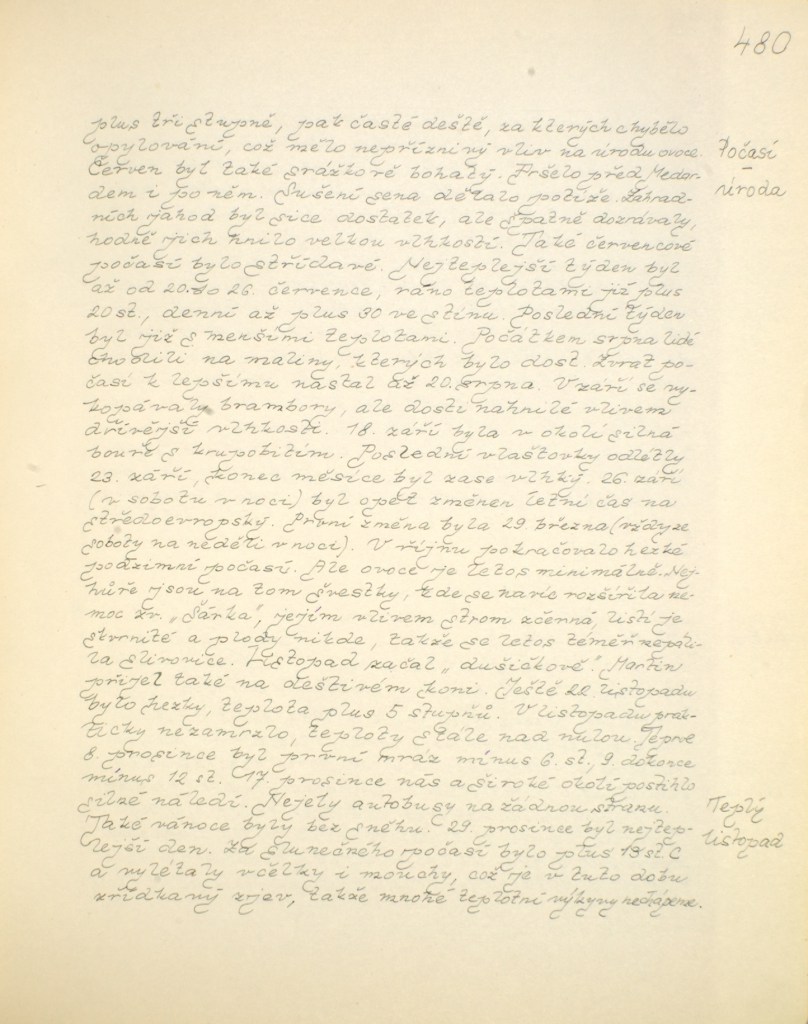 480
plus tři stupně, pak časté deště, za kterých chybělo
opylování, což mělo nepříznivý vliv na úrodu ovoce.
Počasí
-
úroda
Červen byl také srážkově bohatý. Pršelo před Medar-
dem i po něm. Sušení sena dělalo potíže. Zahrad-
ních jahod byl sice dostatek, ale špatně dozrávaly,
hodně jich hnilo velkou vlhkostí. Také červencové
počasí bylo střídavé. Nejteplejší týden byl
až od 20. do 26. července, ráno teplotami již plus
20 st., denní až plus 30 ve stínu. Poslední týden
byl již s menšími teplotami. Počátkem srpna lidé
chodili na maliny, kterých bylo dost. Zvrat po-
časí k lepšímu nastal až 20. srpna. V září se vy-
kopávaly brambory, ale dosti nahnilé vlivem
dřívější vlhkosti. 18. září byla v okolí silná
bouře s krupobitím. Poslední vlaštovky odlétly
23. září, konec měsíce byl zase vlhký. 26. září
(v sobotu v noci) byl opět změnen letní čas na
středoevropský. První změna byla 29. března (vždy ze
soboty na neděli v noci). V říjnu pokračovalo hezké
podzimní počasí. Ale ovoce je letos minimálně. Nej-
hůře jsou na tom švestky, kde se navíc rozšířila ne-
moc zv. „Šárka", jejím vlivem strom zčerná, listí je
skvrnité a plody nikde, takže se letos téměř nepáli-
la slivovice. Listopad začal „dušičkově". Martin
přijel také na deštivém koni. Ještě 22. listopadu
bylo hezky, teplota plus 5 stupňů. V listopadu prak-
ticky nezamrzlo, teploty stále nad nulou. Teprve
8. prosince byl první mráz mínus 6. st., 9. dokonce
mínus 12 st. 17. prosince nás a široké okolí postihlo
silné náledí. Nejely autobusy na žádnou stranu.
Teplý
listopad
Také vánoce byly bez sněhu. 29. prosince byl nejtep-
lejší den. Za slunečného počasí bylo plus 13 st. C
a vylétaly včelky i mouchy, což je v tuto dobu
zřídkavý zjev, takže mnohé teplotní výkyvy nechápeme.